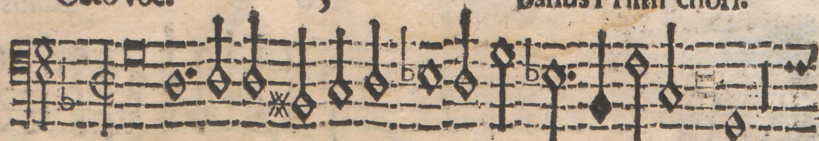 Octo voc. Bassus Primi chori.